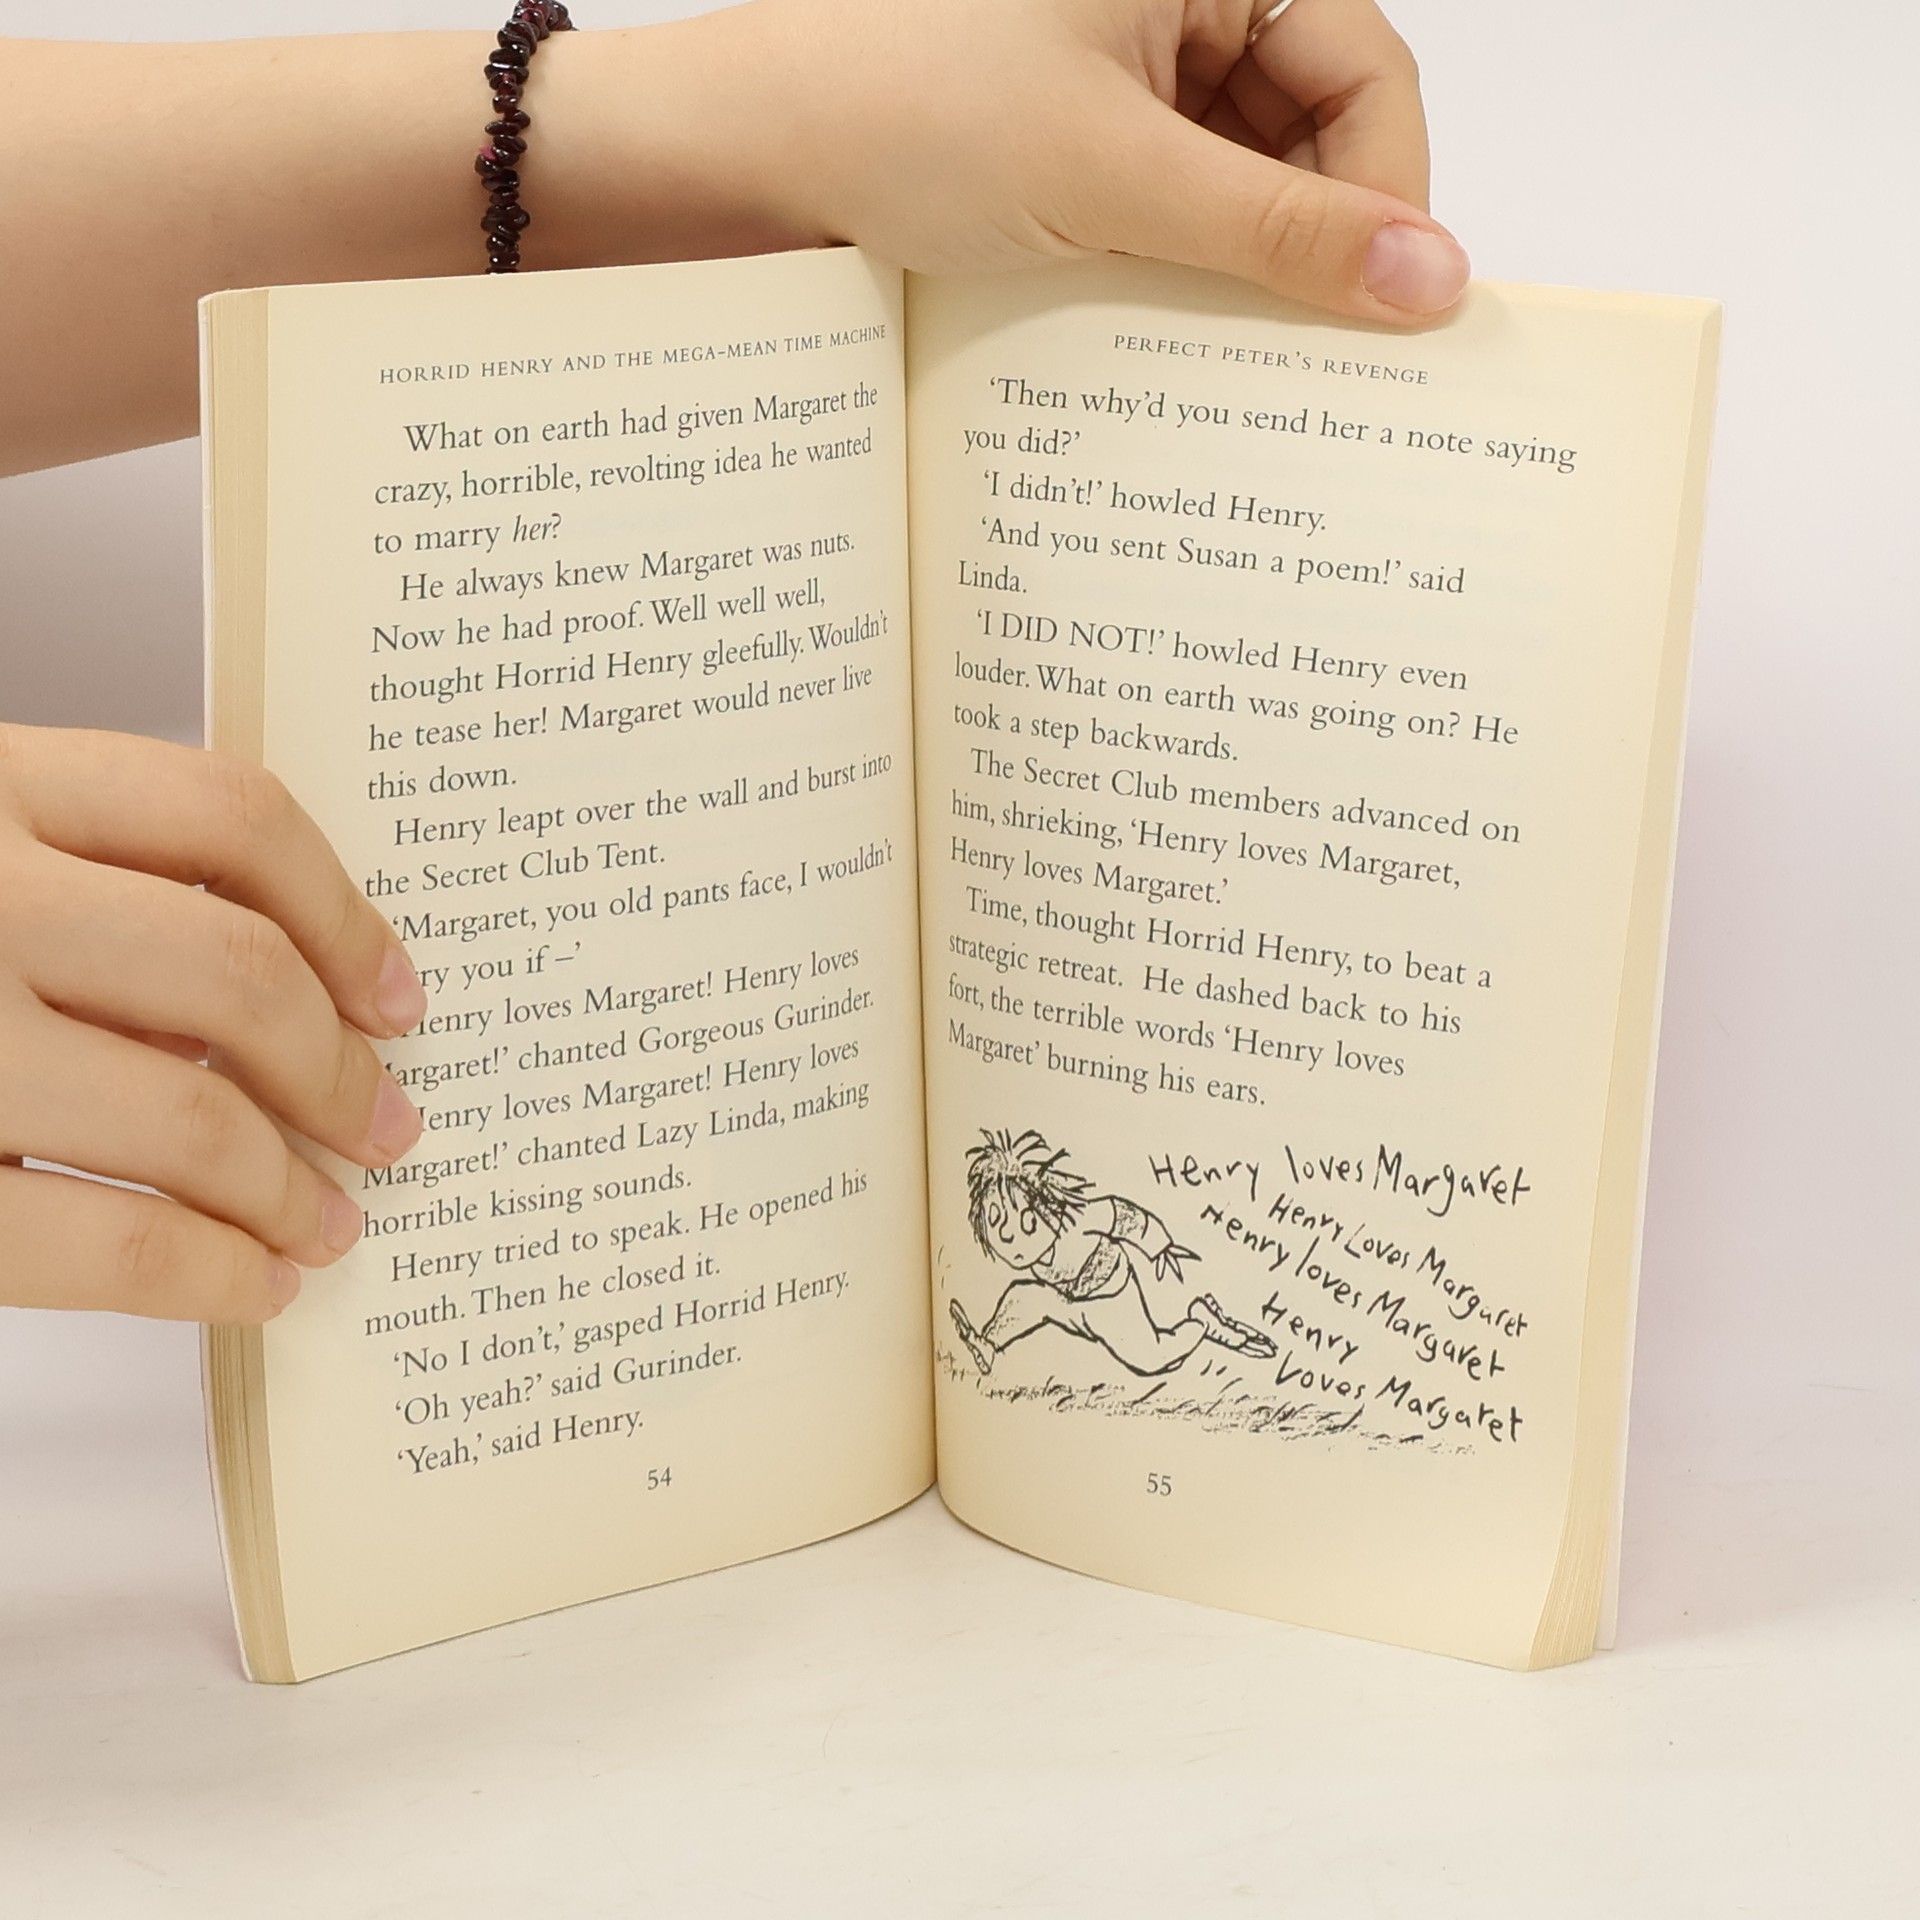 HORRID HENRY AND THE MEGA-MEAN TIME MACHINE
What on earth had given Margaret the
crazy, horrible, revolting idea he wanted
to marry her?
He always knew Margaret was nuts.
Now he had proof. Well well well,
thought Horrid Henry gleefully. Wouldn't
he tease her! Margaret would never live
this down.
Henry leapt over the wall and burst into
the Secret Club Tent.
‘Margaret, you old pants face, I wouldn't
you if –’
Henry loves Margaret! Henry loves
Margaret!’ chanted Gorgeous Gurinder.
Henry loves Margaret! Henry loves
Margaret!’ chanted Lazy Linda, making
horrible kissing sounds.
Henry tried to speak. He opened his
mouth. Then he closed it.
‘No I don't,’ gasped Horrid Henry.
‘Oh yeah?’ said Gurinder.
‘Yeah,’ said Henry.
54
PERFECT PETER'S REVENGE
‘Then why'd you send her a note saying
you did?’
‘I didn't!’ howled Henry.
‘And you sent Susan a poem!’ said
Linda.
‘I DID NOT!’ howled Henry even
louder. What on earth was going on? He
took a step backwards.
The Secret Club members advanced on
him, shrieking, ‘Henry loves Margaret,
Henry loves Margaret.’
Time, thought Horrid Henry, to beat a
strategic retreat. He dashed back to his
fort, the terrible words ‘Henry loves
Margaret’ burning his ears.
Henry loves Margaret
Henry Loves Margaret
Henry loves Margaret
Henry
Loves Margaret
55